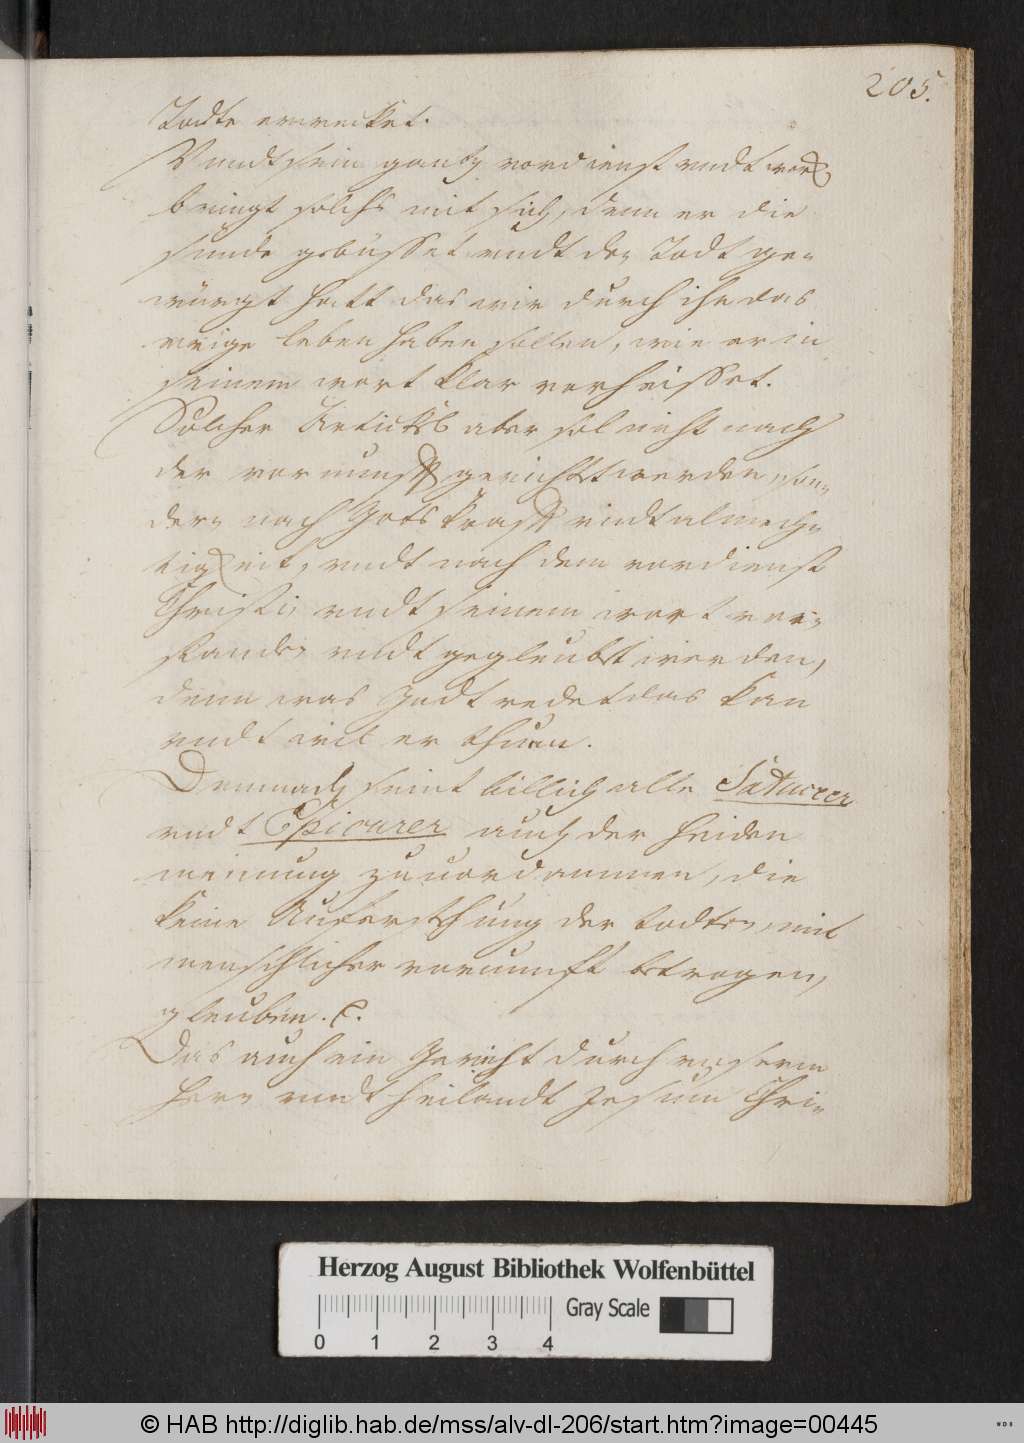 205.
Todte erwecket.
Vundt sein gantz vordienst vndt werk
bringt solchs mit sich, denn er die
sunde gebüsset vndt den Todt ge-
würgt hatt das wir durch ihn das
ewige leben haben sollen, wie er in
seinem wort klar verheisset.
Solcher Artickel aber sol nicht nach
der vornunfft gerichtet werden, son-
dern nach Gots krafft vndt almech-
tigkeit, vndt nach dem vordienst
Christi, vndt seinem wort vor-
standen vndt gegleubt werden,
denn was Godt redet das kan
vndt wil er thuen.
Demnach seint billich alle Satuceer
vndt Epicurer auch der heiden
meinung zuuordammen, die
keine Aufersthung der todten, mit
menschlicher vornunft betrogen,
gleuben. ꝛc.
Das auch ein Gericht durch vnsern
hern vndt heilandt Jesum Chri-
Herzog August Bibliothek Wolfenbüttel
Gray Scale
0 1 2 3 4
© HAB http://diglib.hab.de/mss/alv-dl-206/start.htm?image=00445